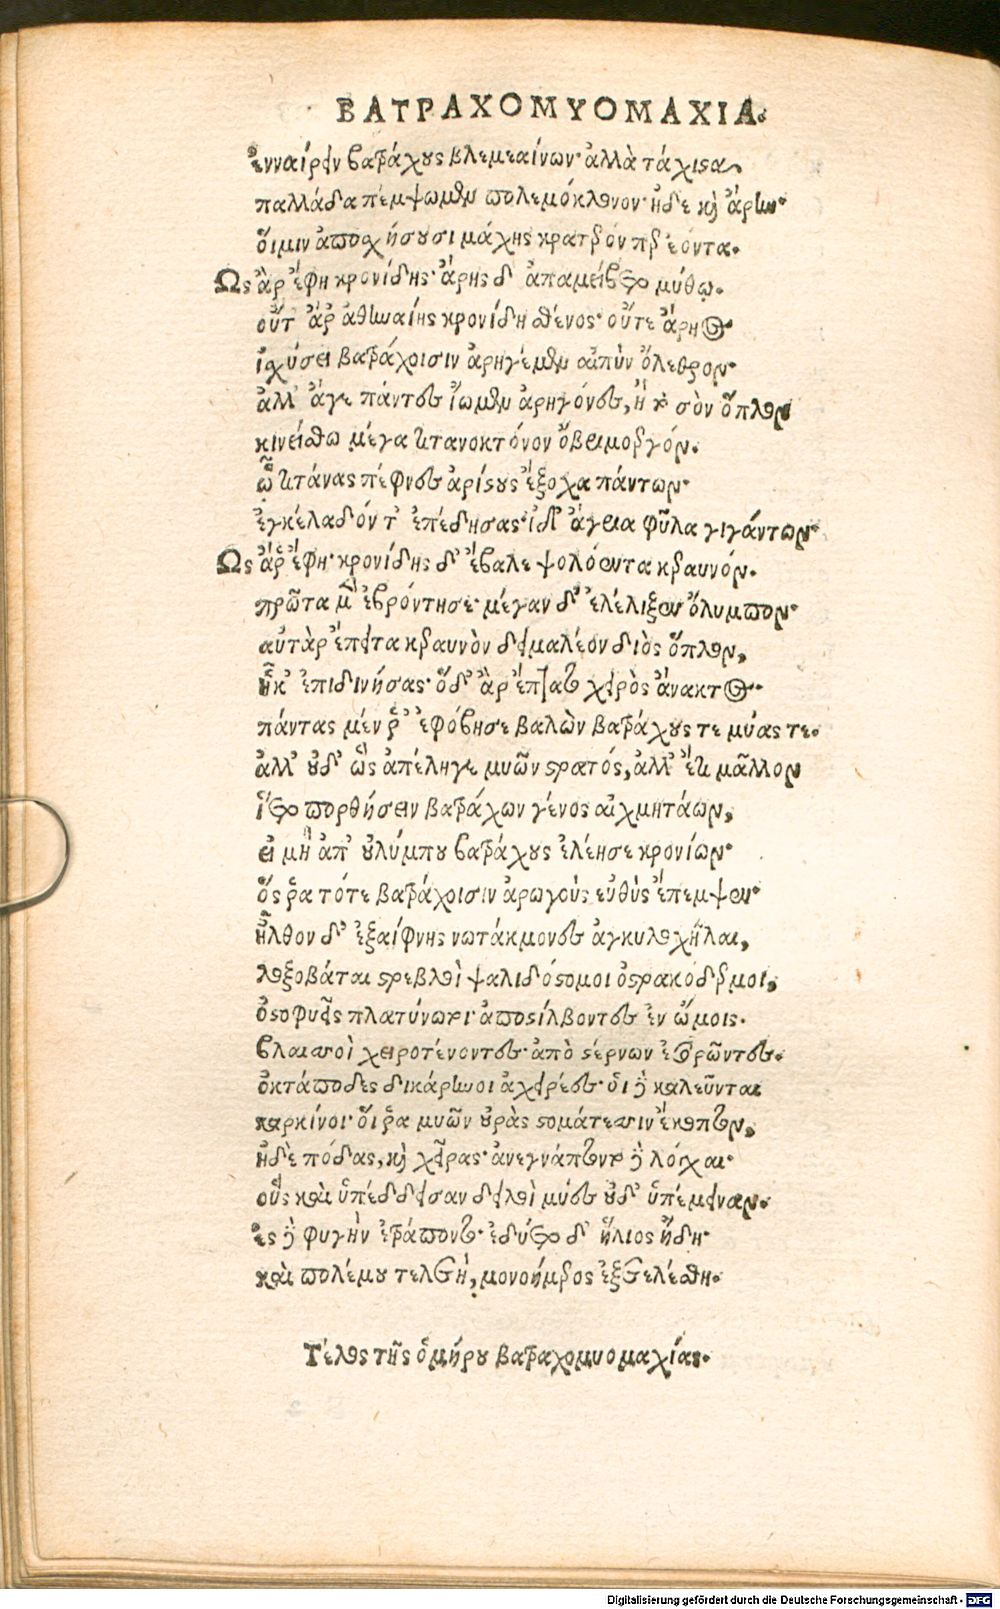 ΒΑΤΡΑΧΟΜΥΟΜΑΧΙΑ.
ἐνναίρειν βατράχους βλεμεαίνων· ἀλλὰ τάχιστα
παλλάδα πέμψωμεν πολεμόκλονον· ἠδὲ καὶ ἄρην·
οἵ μιν ἀποσχήσουσι μάχης κρατερόν περ ἐόντα.
Ὣς ἂρ ἔφη κρονίδης· ἄρης δ' ἀπαμείβετο μύθῳ.
οὔτ' ἂρ ἀθηναίης κρονίδη σθένος· οὔτε ἄρηος
ἰσχύσει βατράχοισιν ἀρηγέμεν αἰπὺν ὄλεθρον·
ἀλλ' ἄγε πάντες ἴωμεν ἀρηγόνες, ἢ τὸ σὸν ὅπλον
κινείσθω μέγα τιτανοκτόνον ὀβριμοεργόν.
ᾧ τιτάνας πέφνες ἀρίστους ἔξοχα πάντων·
ἐγκέλαδόν τ' ἐπέδησας· ἰδ' ἄγρια φῦλα γιγάντων·
Ὣς ἂρ ἔφη· κρονίδης δ' ἔβαλε ψολόεντα κεραυνόν.
πρῶτα μὲν ἐβρόντησε· μέγαν δ' ἐλέλιξεν ὄλυμπον·
αὐτὰρ ἔπειτα κεραυνὸν δειμαλέον διὸς ὅπλον,
ἧκ' ἐπιδινήσας· ὅδ' ἂρ ἔπτατο χειρὸς ἄνακτος·
πάντας μέν ῥ' ἐφόβησε βαλὼν βατράχους τε μύας τε·
ἀλλ' οὐδ' ὣς ἀπέληγε μυῶν στρατός, ἀλλ' ἔτι μᾶλλον
ἵετο πορθήσειν βατράχων γένος αἰχμητάων,
εἰ μὴ ἀπ' οὐλύμπου βατράχους ἐλέησε κρονίων·
ὅς ῥα τότε βατράχοισιν ἀρωγοὺς εὐθὺς ἔπεμψεν·
ἦλθον δ' ἐξαίφνης νωτάκμονες ἀγκυλοχῆλαι,
λοξοβάται στρεβλοὶ ψαλιδόστομοι ὀστρακόδερμοι,
ὀστοφυεῖς πλατύνωτοι· ἀποστίλβοντες ἐν ὤμοις.
βλαισοὶ χειροτένοντες· ἀπὸ στέρνων ἐσορῶντες.
ὀκτάποδες δικάρηνοι ἀχειρέες· οἱ δὲ καλεῦνται
καρκίνοι· οἵ ῥα μυῶν οὐρὰς στομάτεσσιν ἔκοπτον,
ἠδὲ πόδας, καὶ χεῖρας· ἀνεγνάπτοντο δὲ λόγχαι·
οὓς καὶ ὑπέδδεισαν δειλοὶ μύες οὐδ' ὑπέμειναν.
ἐς δὲ φυγὴν ἐτράποντο· ἐδύετο δ' ἥλιος ἤδη·
καὶ πολέμου τελετὴ, μονοήμερος ἐξετελέσθη.
Τέλος τῆς ὁμήρου βατραχομυομαχίας.
Digitalisierung gefördert durch die Deutsche Forschungsgemeinschaft - DFG